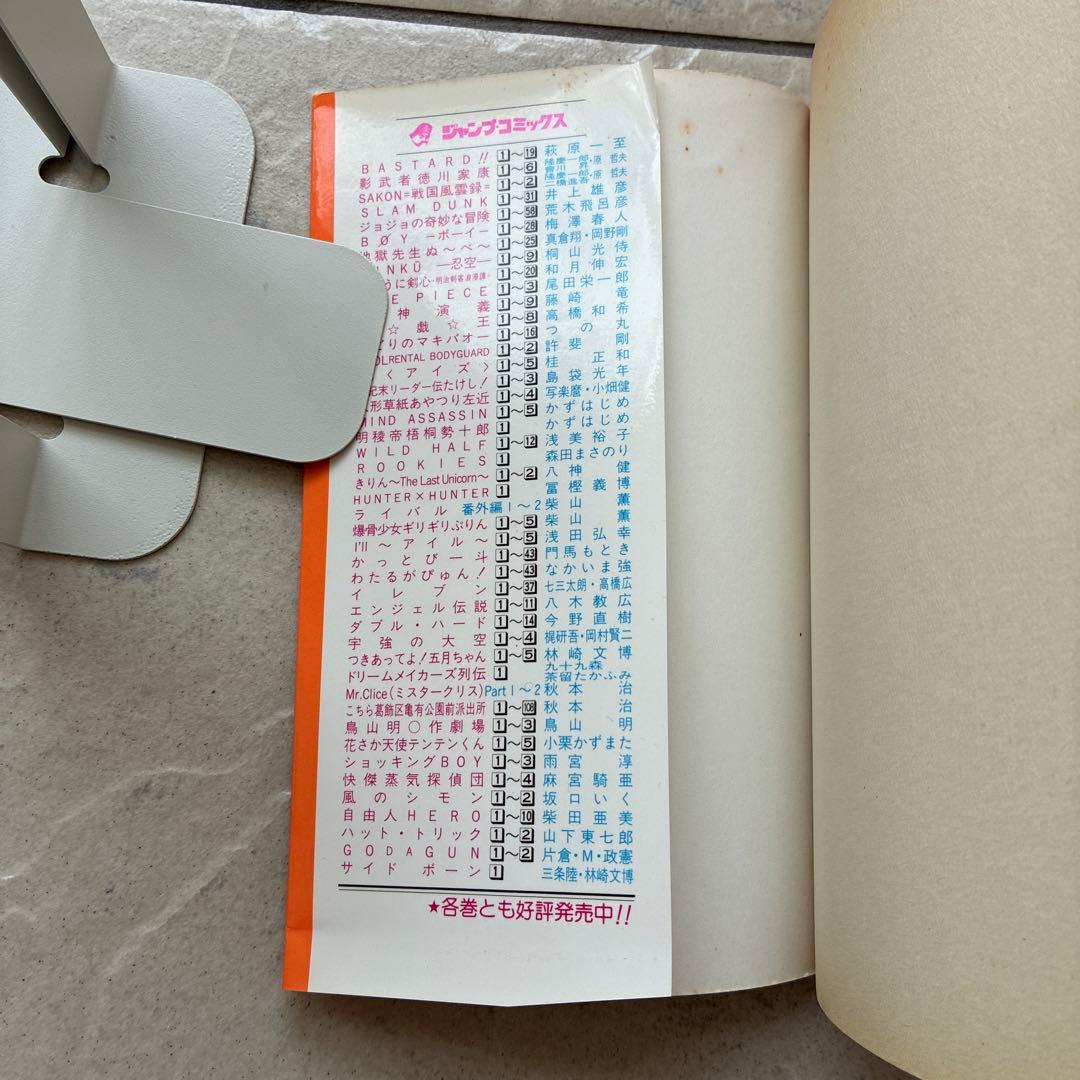 ジャンプ・コミックス
BASTARD!! 1〜19 萩原一至
影武者徳川家康 1〜6 隆慶一郎・原 哲夫 會川 昇
SAKON=戦国風雲録= 1〜2 隆慶一郎・原 哲夫 二橋進吾
SLAM DUNK 1〜31 井上雄彦
ジョジョの奇妙な冒険 1〜58 荒木飛呂彦
BØY ―ボーイ― 1〜28 梅澤春人
地獄先生ぬ〜べ〜 1〜25 真倉翔・岡野剛
INKŪ ―忍空― 1〜9 桐山光侍
うに剣心・明治剣客浪漫譚・ 1〜20 和月伸宏
E PIECE 1〜3 尾田栄一郎
神演義 1〜9 藤崎竜
☆戯☆王 1〜8 高橋和希
どりのマキバオー 1〜16 つの丸
OLRENTAL BODYGUARD 1〜2 許斐剛
〈アイズ〉 1〜5 桂正和
紀末リーダー伝たけし! 1〜3 島袋光年
形草紙あやつり左近 1〜4 写楽麿・小畑健
MIND ASSASSIN 1〜5 かずはじめ
明稜帝梧桐勢十郎 1 かずはじめ
WILD HALF 1〜12 浅美裕子
ROOKIES 1 森田まさのり
きりん〜The Last Unicorn〜 1〜2 八神健
HUNTER×HUNTER 1 冨樫義博
ライバル 番外編1〜2 柴山薫
爆骨少女ギリギリぷりん 1〜5 柴山薫
I'll〜アイル〜 1〜5 浅田弘幸
かっとび一斗 1〜43 門馬もとき
わたるがぴゅん! 1〜43 なかいま強
イレブン 1〜37 七三太朗・高橋広
エンジェル伝説 1〜11 八木教広
ダブル・ハード 1〜14 今野直樹
宇強の大空 1〜4 梶研吾・岡村賢二
つきあってよ!五月ちゃん 1〜5 林崎文博
ドリームメイカーズ列伝 1 九十九森 茶留たかふみ
Mr.Clice(ミスタークリス) Part1〜2 秋本治
こちら葛飾区亀有公園前派出所 1〜108 秋本治
鳥山明○作劇場 1〜3 鳥山明
花さか天使テンテンくん 1〜5 小栗かずまた
ショッキングBOY 1〜3 雨宮淳
快傑蒸気探偵団 1〜4 麻宮騎亜
風のシモン 1〜2 坂口いく
自由人HERO 1〜10 柴田亜美
ハット・トリック 1〜2 山下東七郎
GODAGUN 1〜2 片倉・M・政憲
サイドボーン 1 三条陸・林崎文博
★各巻とも好評発売中!!